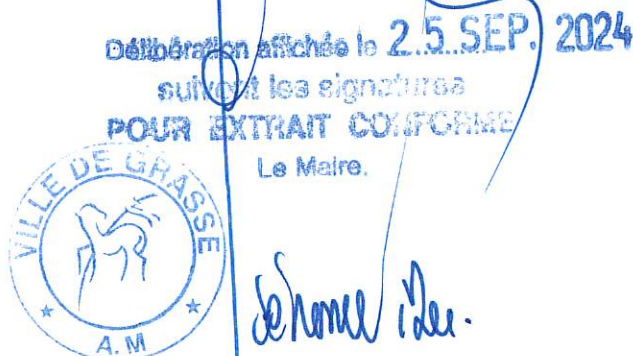 Délibération affichée le 25 SEP. 2024
suivent les signatures
POUR EXTRAIT CONFORME
Le Maire.
VILLE DE GRASSE
A.M